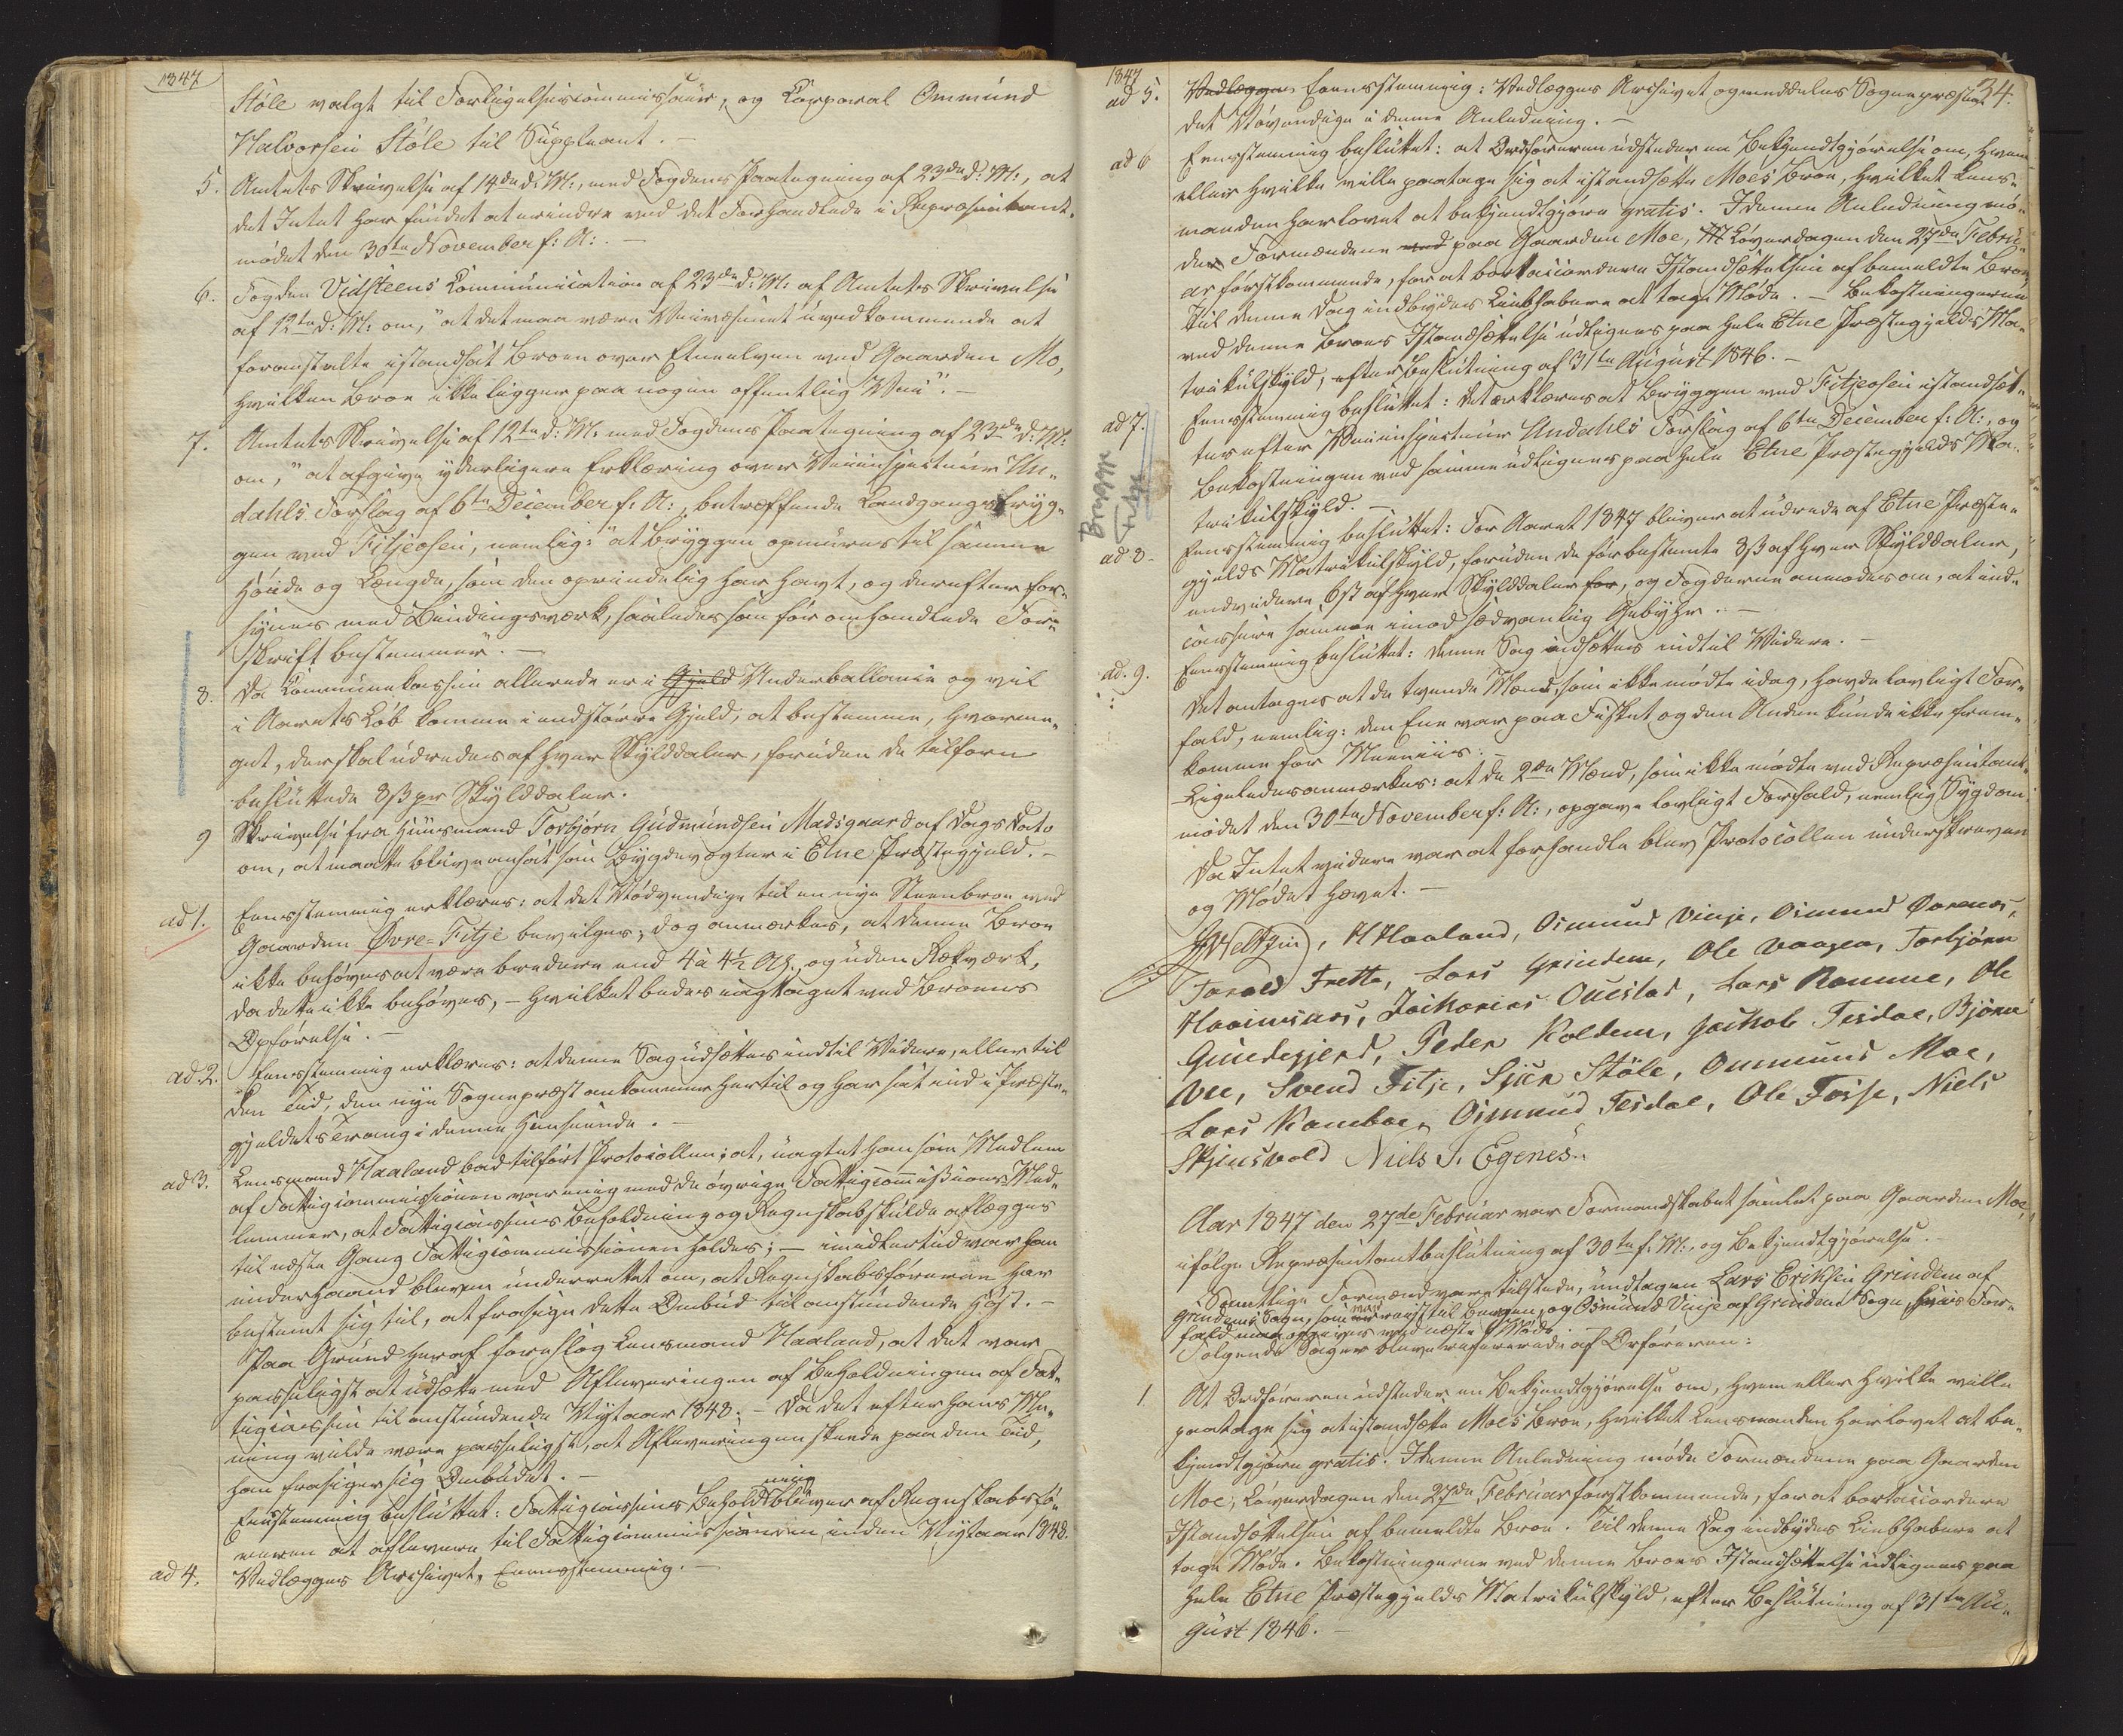 1847
Støle valgt til Forligelsescommissair, og Corporal Ommund
Halvorsen Støle til Suppleant. –
5. Amtets Skrivelse af 14de d: M:, med Fogdens Paategning af 23de d: M:, at
det Intet har fundet at erindre ved det Forhandlede i Repræsentant-
mødet den 30te November f: A:. –
6. Fogden Vidsteens Communication af 23de d: M: af Amtets Skrivelse
af 12te d: M: om, "at det maa være Veivæsenet uvedkommende at
foranstalte istandsat Broen over Etneelven ved Gaarden Mo,
hvilken Broe ikke ligger paa nogen offentlig Vei". –
7. Amtets Skrivelse af 12te d: M: med Fogdens Paategning af 23de d: M:
om, "at afgive yderligere Erklæring over Veiinspecteur Un-
dahls Forslag af 6te December f: A:, betreffende Landgangsbryg-
gen ved Fitjeosen, nemlig: "at Bryggen opmures til samme
Høide og Længde, som den oprindelig har havt, og derefter for-
synes med Bindingsværk, saaledes som før omhandlede For-
skrift bestemmer". –
8. Da Communekassen allerede er i Gjeld Underballance og vil
i Aarets Løb komme i endstørre Gjeld, at bestemme, hvorme-
get, der skal udredes af hver Skylddaler, foruden de tilforn
besluttede 8 ß pr Skylddaler.
9 Skrivelse fra Huusmand Torbjørn Gudmundsen Madsgaard af Dags Dato
om, at maatte blive ansat som Bygdevogter i Etne Præstegjeld. –
ad 1. Eensstemmig erklæres: at det Nødvendige til en nye Steenbroe ved
Gaarden Øvre-Fitje bevilges; dog anmærkes, at denne Broe
ikke behøves at være bredere end 4 à 4½ Al:, og uden Rækværk,
da dette ikke behøves, – hvilket bedes iagttaget ved Broens
Opførelse. –
ad. 2. Eensstemmig erklæres: at denne Sag udsættes indtil Videre, eller til
den Tid, den nye Sognepræst ankommer hertil og har sat ind i Præste-
gjeldets Trang i denne Henseende. –
ad 3. Lensmand Haaland bad tilført Protocollen: at, uagtet han som Medlem
af Fattigcommissionen var enig med de øvrige Fattigcommissions Med-
lemmer, at Fattigcassens Beholdning og Regnskab skulde aflægges
til næste Gang Fattigcommissionen holdes; – imidlertid var han
underhaand bleven underrettet om, at Regnskabsføreren har
bestemt sig til, at frasige dette Ombud til anstundende Høst. –
Paa Grund heraf foreslog Lensmand Haaland, at det var
passeligst at udsætte med Afleveringen af Beholdningen af Fat-
tigcassen til anstundende Nytaar 1848; – da det efter hans Me-
ning vilde være passeligst, at Afleveringen skeede paa den Tid,
han frasiger sig Ombudet. –
Eensstemmig besluttet: Fattigcassens Beholdning bliver af Regnskabsfø-
reren at aflevere til Fattigcommissionen inden Nytaar 1848.
ad 4. Vedlægges Archivet, Eensstemmig. –
1847
34.
ad 5. Vedlægges Eensstemmig: Vedlægges Archivet og meddeles Sognepræsten
det Nøvendige i denne Anledning. –
ad 6 Eensstemmig besluttet: at Ordføreren udsteder en Bekjendtgjørelse om, hvem
eller hvilke ville paatage sig at istandsætte Moes Broe, hvilket Lens-
manden har lovet at bekjendtgjøre gratis. I denne Anledning mø-
der Formændene ved paa Gaarden Moe, Løverdagen den 27de Febru-
ar førstkommende, for at bortaccordere Istandsættelsen af bemeldte Broe,
til denne Dag indbydes Liebhabere at tage Møde. – Bekostningerne
ved denne Broes Istandsættelse udlignes paa hele Etne Præstegjelds Ma-
trikulskyld, efter Beslutning af 31te August 1846. –
ad 7. Eensstemmig besluttet: det erklæres at Bryggen ved Fitjeosen istandsæt-
tes efter Veiinspecteur Undahls Forslag af 6te December f: A:, og
Bekostningen ved samme udlignes paa hele Etne Præstegjelds Ma-
trikulskyld. –
Brygge
Fitje
ad 8. Eensstemmig besluttet: For Aaret 1847 bliver at udrede af Etne Præste-
gjelds Matrikulskyld, foruden de før bestemte 8 ß af hver Skylddaler,
endvidere 6 ß af hver Skylddaler for, og Fogderne anmodes om, at ind-
cassere samme imod sædvanlig Gebyhr. –
ad. 9. Eensstemmig besluttet: denne Sag udsættes indtil Videre. –
Det antages at de tvende Mænd, som ikke mødte idag, havde lovligt For-
fald, nemlig: den Ene var paa Fisket og den Anden kunde ikke frem-
komme for Meeniis. –
Ligeledes anmærkes: at de 2de Mænd, som ikke mødte ved Repræsentant-
mødet den 30te November f: A:, opgave lovligt Forfald, nemlig Sygdom.
Da Intet videre var at forhandle blev Protocollen underskreven
og Mødet hævet. –
Weltzin, H Haaland, Osmund Vinje, Osmund Øorenes,
Torald Frette, Lars Grindem, Ole Vaagen, Torbjørn
Haaimsnes, Zacharias Ouestad, Lars Ramme, Ole
Gundegjerd, Peder Koldem, Jachob Tesdal, Bjørn
Vee, Svend Fitje, Sjur Støle, Ommund Moe,
Lars Kamboe, Osmund Tesdal, Ole Fosse, Niels
Skjensvold Niels S. Egenes.
Aar 1847 den 27de Februar var Formandskabet samlet paa Gaarden Moe,
ifølge Repræsentantbeslutning af 30te f: M:, og Bekjendtgjørelse. –
Samtlige Formænd vare tilstede, undtagen Lars Eriksen Grindem af
Grindems Sogn, som var reist til Bergen, og Osmund Vinje af Grindems Sogn, hvis For-
fald maa opgives ved næste Møde.
Følgende Sager bleve refererede af Orføreren:
1. At Ordføreren udsteder en Bekjendtgjørelse om, hvem eller hvilke ville
paatage sig at istandsætte Moes Broe, hvilket Lensmanden har lovet at be-
kjendtgjøre gratis. I denne Anledning møde Formændene paa Gaarden
Moe, Løverdagen den 27de Februar førstkommende, for at bortaccordere
Istandsættelsen af bemeldte Broe. Til denne Dag indbydes Liebhabere at
tage Møde. Bekostningerne ved denne Broes Istandsættelse udlignes paa
hele Etne Præstegjelds Matrikulskyld, efter Beslutning af 31te Au-
gust 1846. –